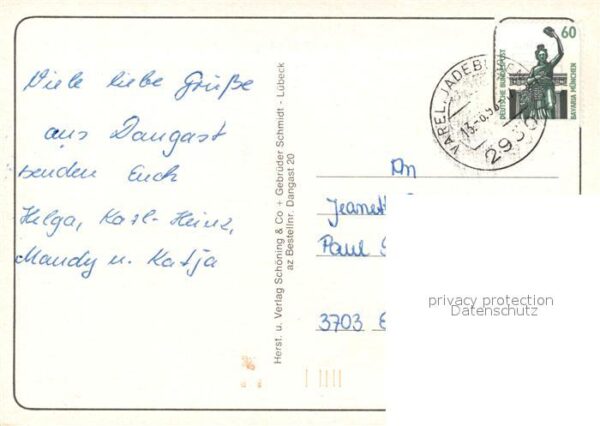 Viele liebe Grüße
aus Dangast
senden Euch
Helga, Karl-Heinz,
Mandy u. Katja
Herst. u. Verlag Schöning & Co + Gebrüder Schmidt - Lübeck
az Bestellnr. Dangast 20
60
DEUTSCHE BUNDESPOST
BAVARIA MÜNCHEN
VAREL, JADEBUS
2930
An
Jeanett
Paul
3703
privacy protection
Datenschutz